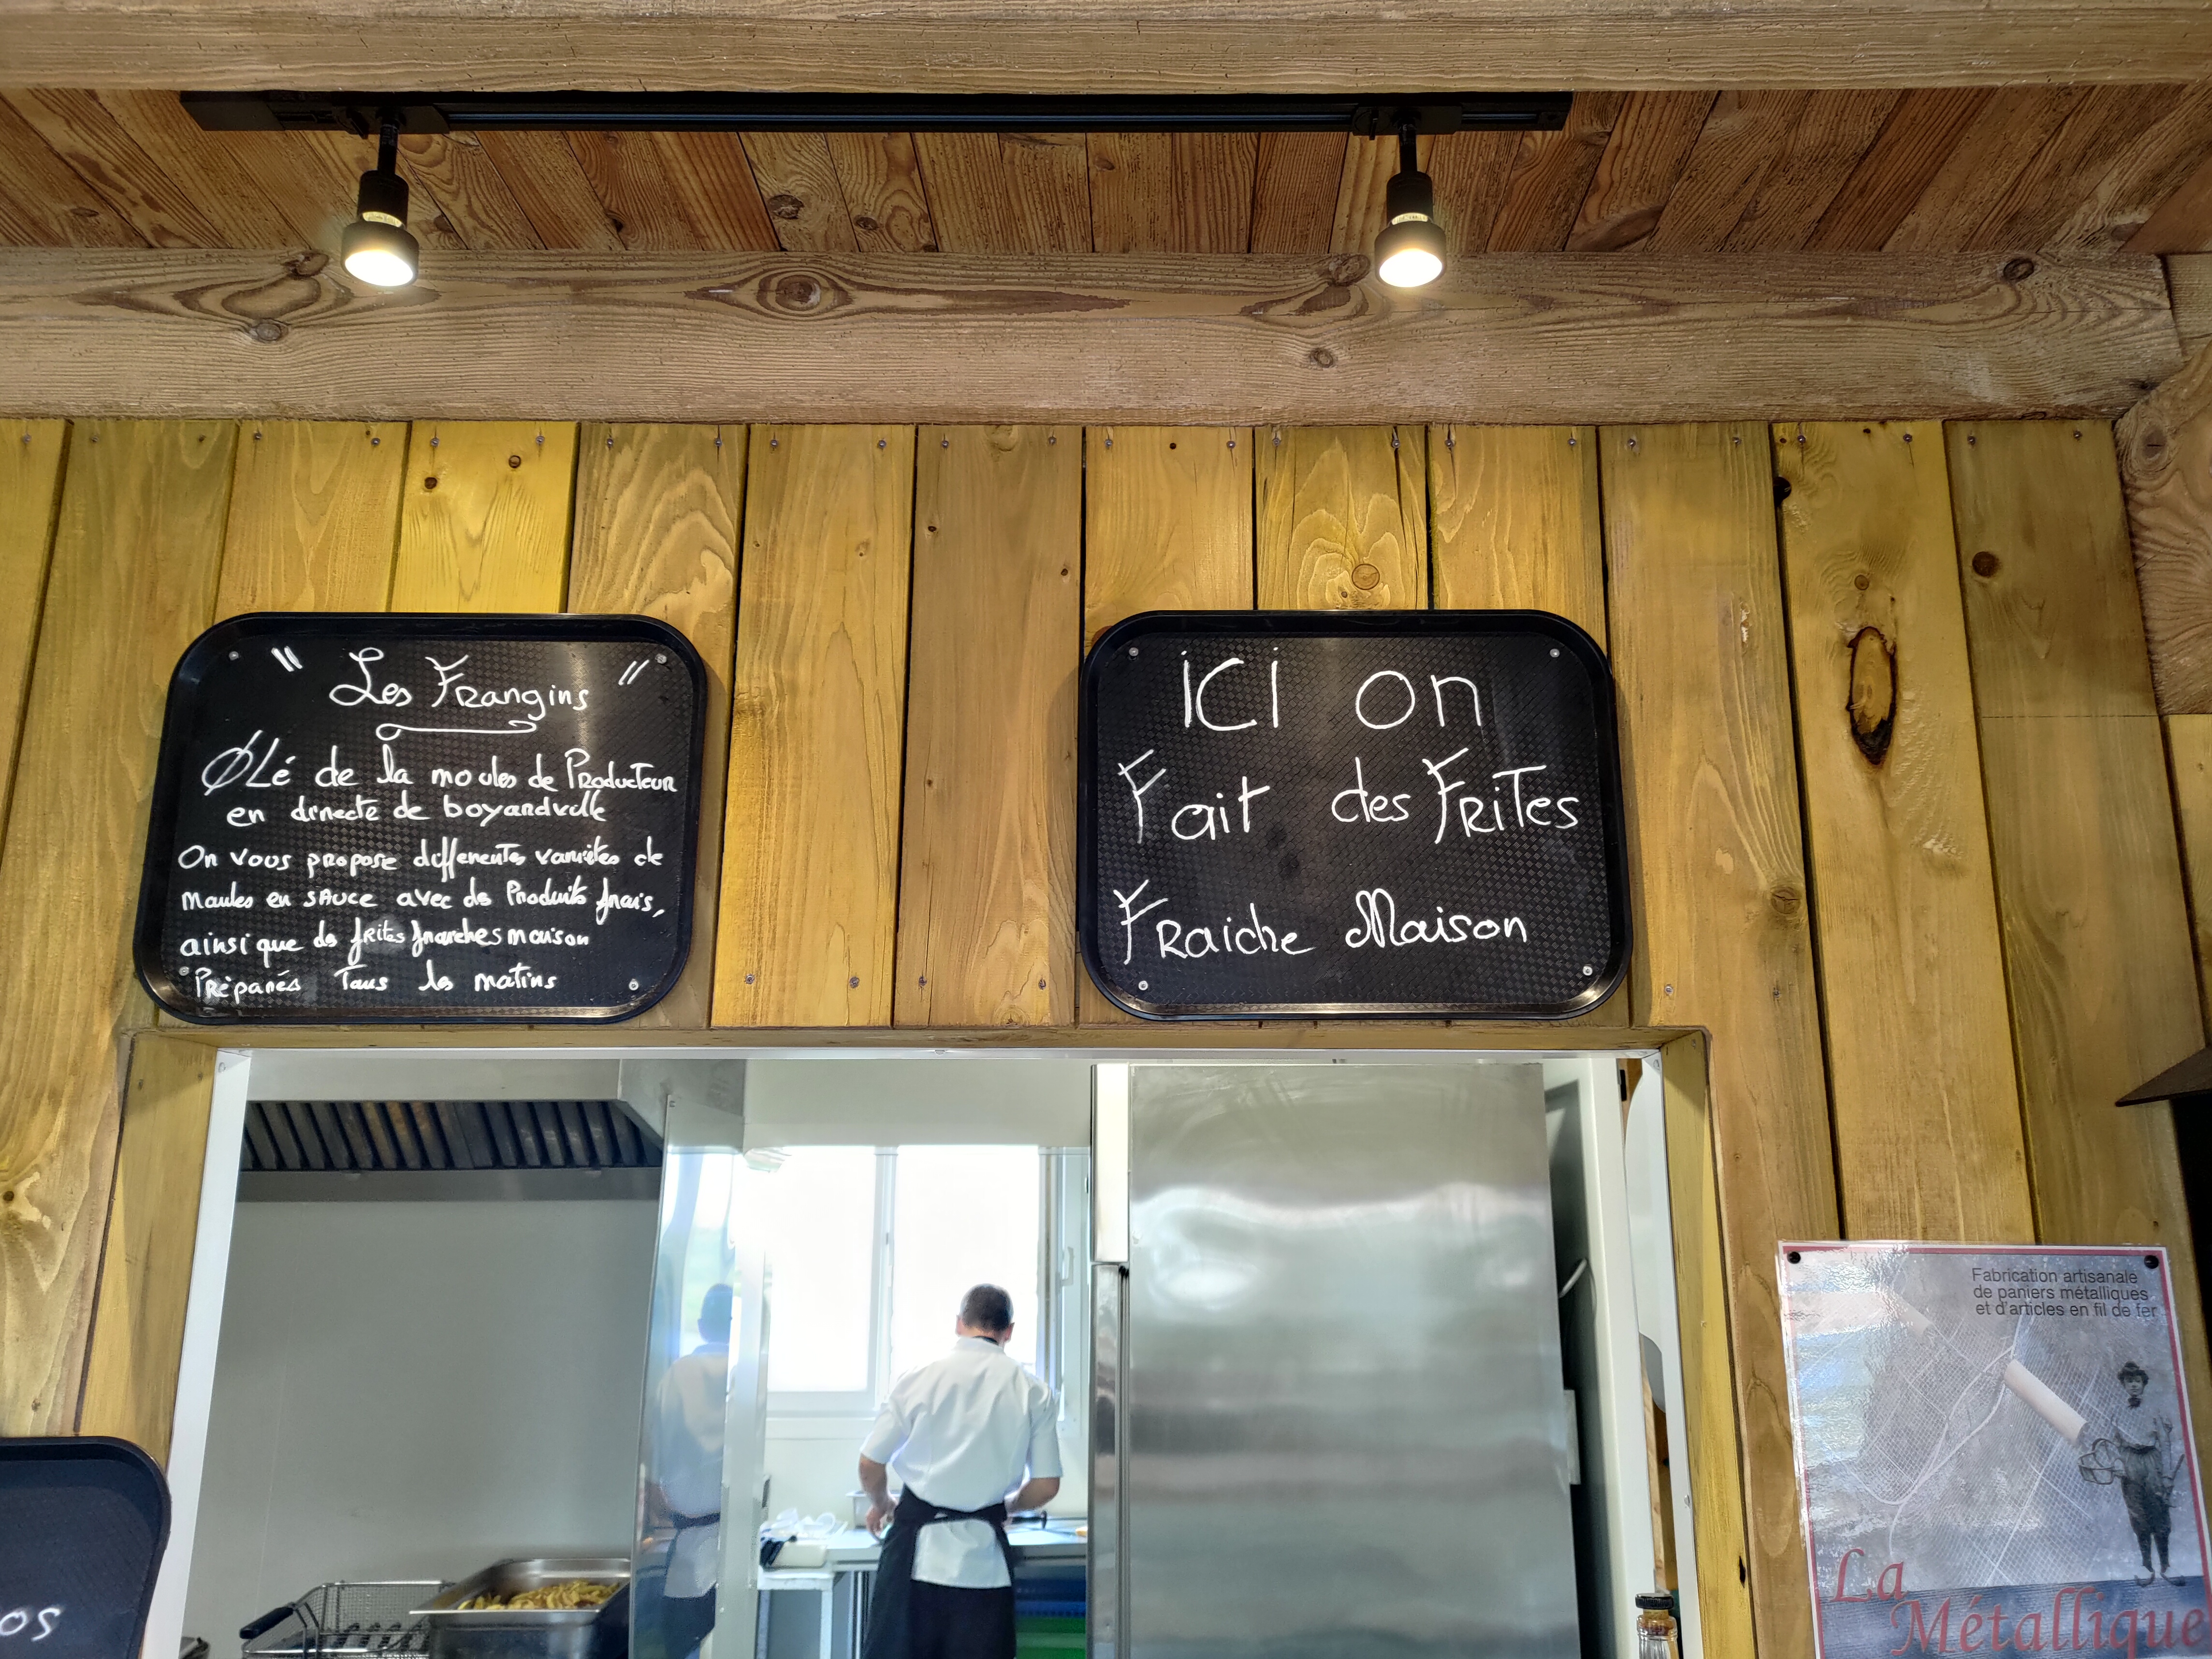 " Les Frangins "
ØLé de la moules de Producteur
en directe de boyardville
On vous propose differentes variétés de
moules en sauce avec des Produits frais,
ainsi que des frites fraiches maison
Préparés Tous les matins
ici on
Fait des Frites
Fraiche Maison
Fabrication artisanale
de paniers métalliques
et d'articles en fil de fer
La
Métallique
os